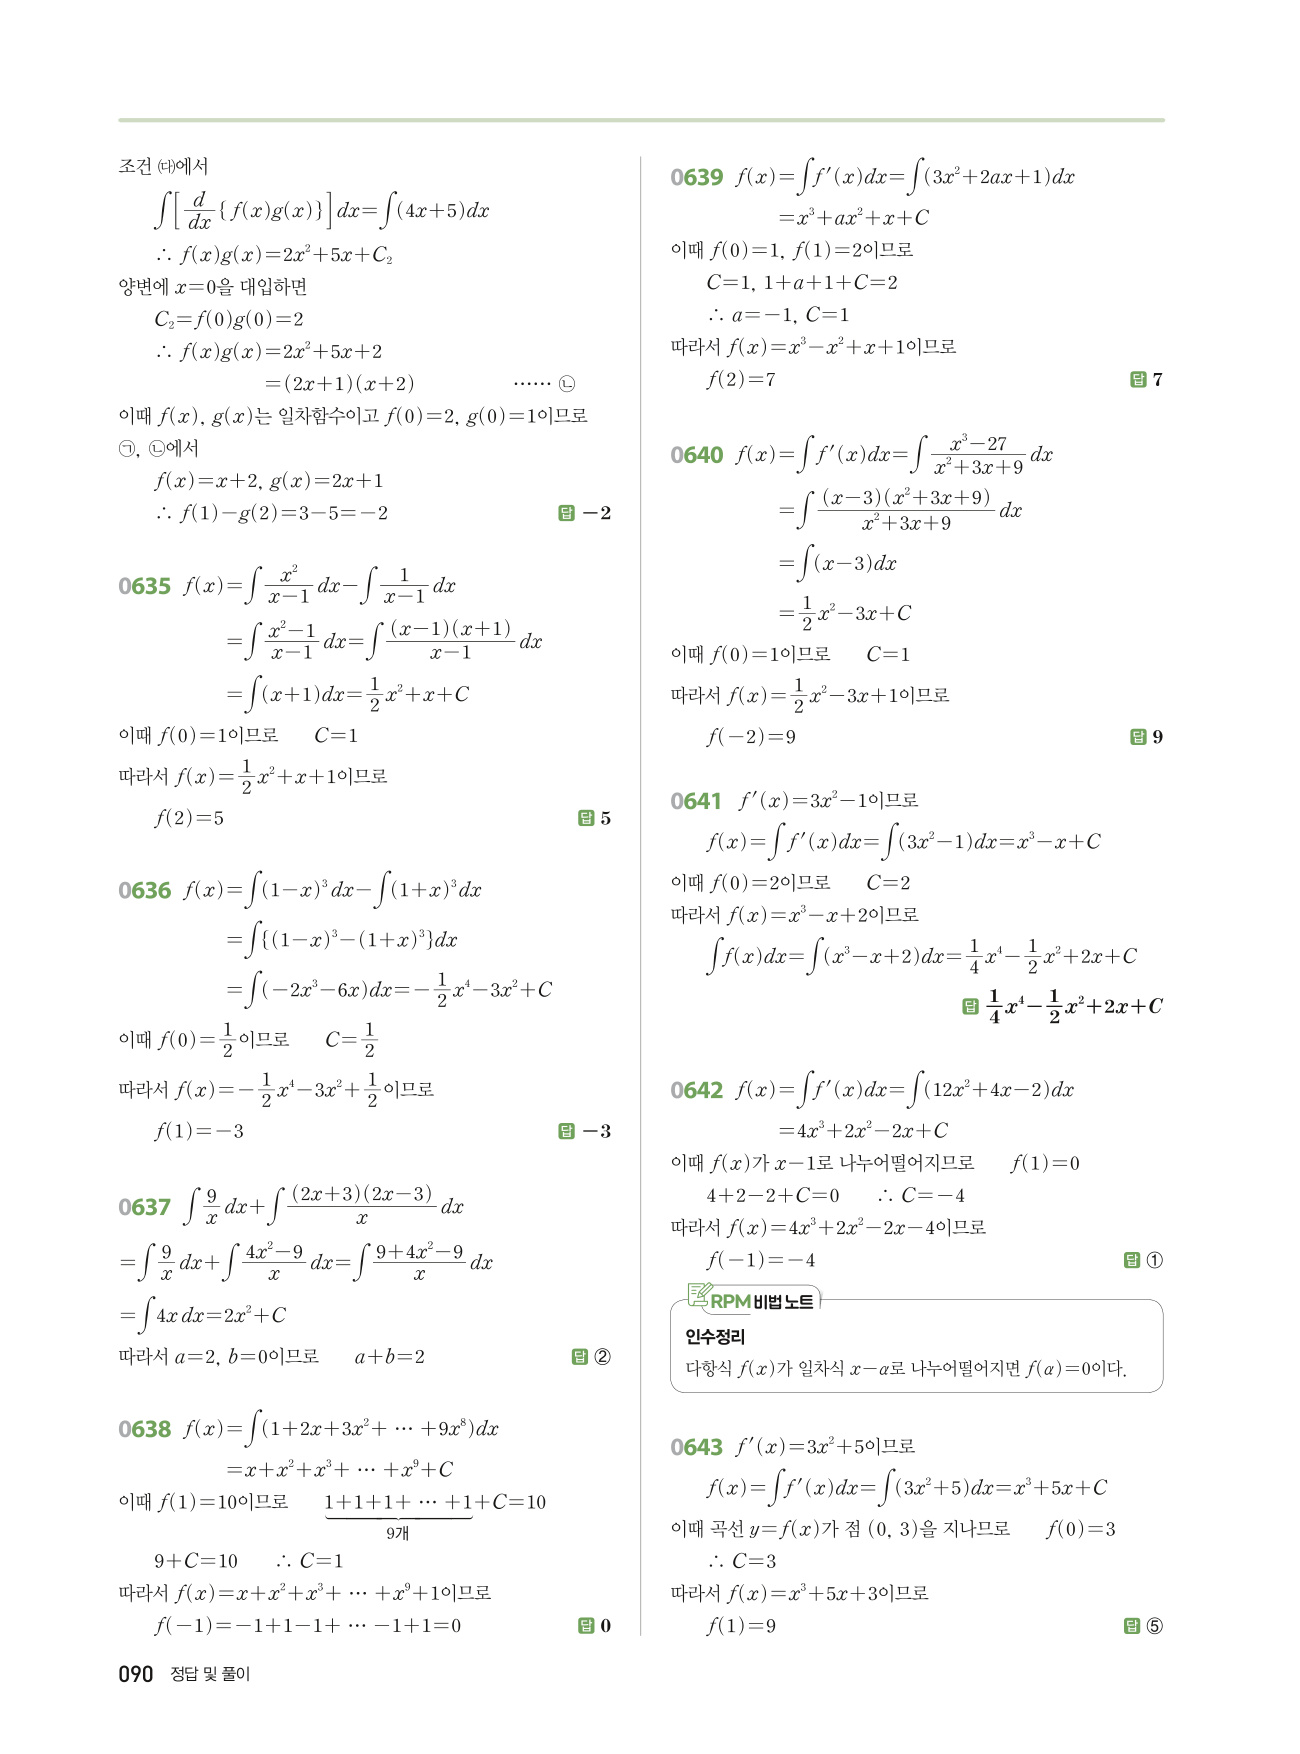 조건 ㈐에서
∫[d/dx{f(x)g(x)}]dx=∫(4x+5)dx
∴ f(x)g(x)=2x²+5x+C₂
양변에 x=0을 대입하면
C₂=f(0)g(0)=2
∴ f(x)g(x)=2x²+5x+2
=(2x+1)(x+2) …… ㉡
이때 f(x), g(x)는 일차함수이고 f(0)=2, g(0)=1이므로
㉠, ㉡에서
f(x)=x+2, g(x)=2x+1
∴ f(1)-g(2)=3-5=-2 답 -2
0635 f(x)=∫x²/(x-1) dx-∫1/(x-1) dx
=∫(x²-1)/(x-1) dx=∫(x-1)(x+1)/(x-1) dx
=∫(x+1)dx=1/2x²+x+C
이때 f(0)=1이므로 C=1
따라서 f(x)=1/2x²+x+1이므로
f(2)=5 답 5
0636 f(x)=∫(1-x)³dx-∫(1+x)³dx
=∫{(1-x)³-(1+x)³}dx
=∫(-2x³-6x)dx=-1/2x⁴-3x²+C
이때 f(0)=1/2이므로 C=1/2
따라서 f(x)=-1/2x⁴-3x²+1/2이므로
f(1)=-3 답 -3
0637 ∫9/x dx+∫(2x+3)(2x-3)/x dx
=∫9/x dx+∫(4x²-9)/x dx=∫(9+4x²-9)/x dx
=∫4x dx=2x²+C
따라서 a=2, b=0이므로 a+b=2 답 ②
0638 f(x)=∫(1+2x+3x²+ … +9x⁸)dx
=x+x²+x³+ … +x⁹+C
이때 f(1)=10이므로 1+1+1+ … +1+C=10
9개
9+C=10 ∴ C=1
따라서 f(x)=x+x²+x³+ … +x⁹+1이므로
f(-1)=-1+1-1+ … -1+1=0 답 0
090 정답 및 풀이
0639 f(x)=∫f'(x)dx=∫(3x²+2ax+1)dx
=x³+ax²+x+C
이때 f(0)=1, f(1)=2이므로
C=1, 1+a+1+C=2
∴ a=-1, C=1
따라서 f(x)=x³-x²+x+1이므로
f(2)=7 답 7
0640 f(x)=∫f'(x)dx=∫(x³-27)/(x²+3x+9) dx
=∫(x-3)(x²+3x+9)/(x²+3x+9) dx
=∫(x-3)dx
=1/2x²-3x+C
이때 f(0)=1이므로 C=1
따라서 f(x)=1/2x²-3x+1이므로
f(-2)=9 답 9
0641 f'(x)=3x²-1이므로
f(x)=∫f'(x)dx=∫(3x²-1)dx=x³-x+C
이때 f(0)=2이므로 C=2
따라서 f(x)=x³-x+2이므로
∫f(x)dx=∫(x³-x+2)dx=1/4x⁴-1/2x²+2x+C
답 1/4x⁴-1/2x²+2x+C
0642 f(x)=∫f'(x)dx=∫(12x²+4x-2)dx
=4x³+2x²-2x+C
이때 f(x)가 x-1로 나누어떨어지므로 f(1)=0
4+2-2+C=0 ∴ C=-4
따라서 f(x)=4x³+2x²-2x-4이므로
f(-1)=-4 답 ①
RPM 비법 노트
인수정리
다항식 f(x)가 일차식 x-α로 나누어떨어지면 f(α)=0이다.
0643 f'(x)=3x²+5이므로
f(x)=∫f'(x)dx=∫(3x²+5)dx=x³+5x+C
이때 곡선 y=f(x)가 점 (0, 3)을 지나므로 f(0)=3
∴ C=3
따라서 f(x)=x³+5x+3이므로
f(1)=9 답 ⑤